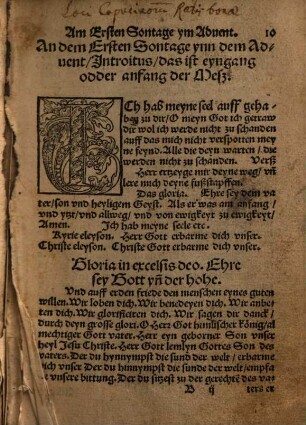 Am Ersten Sontage ym Advent. 10
An dem Ersten Sontage ynn dem Ad-
vent/Introitus/das ist eyngang
odder anfang der Mesz.
Ich hab meyne seel auff geha-
ben zu dir/O meyn Got ich getraw
dir wol ich werde nicht zu schanden
auff das mich nicht verspotten mey
ne feynd. Alle die deyn warten/die
werden nicht zu schanden. Versz
Herr ertzeyge mir deyne weg/vñ
lere mich deyne fußstapffen.
Das gloria. Ehre sey dem va
ter/son vnd heyligem Geyst. Als er was am anfang/
vnd ytzt/vnd allweg/vnd von ewigkeyt zu ewigkeyt/
Amen. Ich hab meyne seele etc.
Kyrie eleyson. Herr Gott erbarme dich vnser.
Christe eleyson. Christe Gott erbarme dich vnser.
Gloria in excelsis deo. Ehre
sey Gott yñ der hohe.
Vnd auff erden friede den menschen eynes guten
willen. Wir loben dich. Wir benedeyen dich. Wir anbe
ten dich. Wir glorificiren dich. Wir sagen dir danck/
durch deyn grosse glori. O Herr Got himlischer König/al
mechtiger Gott vater. Herr eyn geborner Son vnser
heyl Jesu Christe. Herr Gott lemlyn Gottes Son des
vaters. Der du hynnympst die sund der welt/erbarme
dich vnser Der du hinnympst die sunde der welt/empfa
he vnsere bittung. Der du sitzest zu der gerechtē des va-
B ij ters er